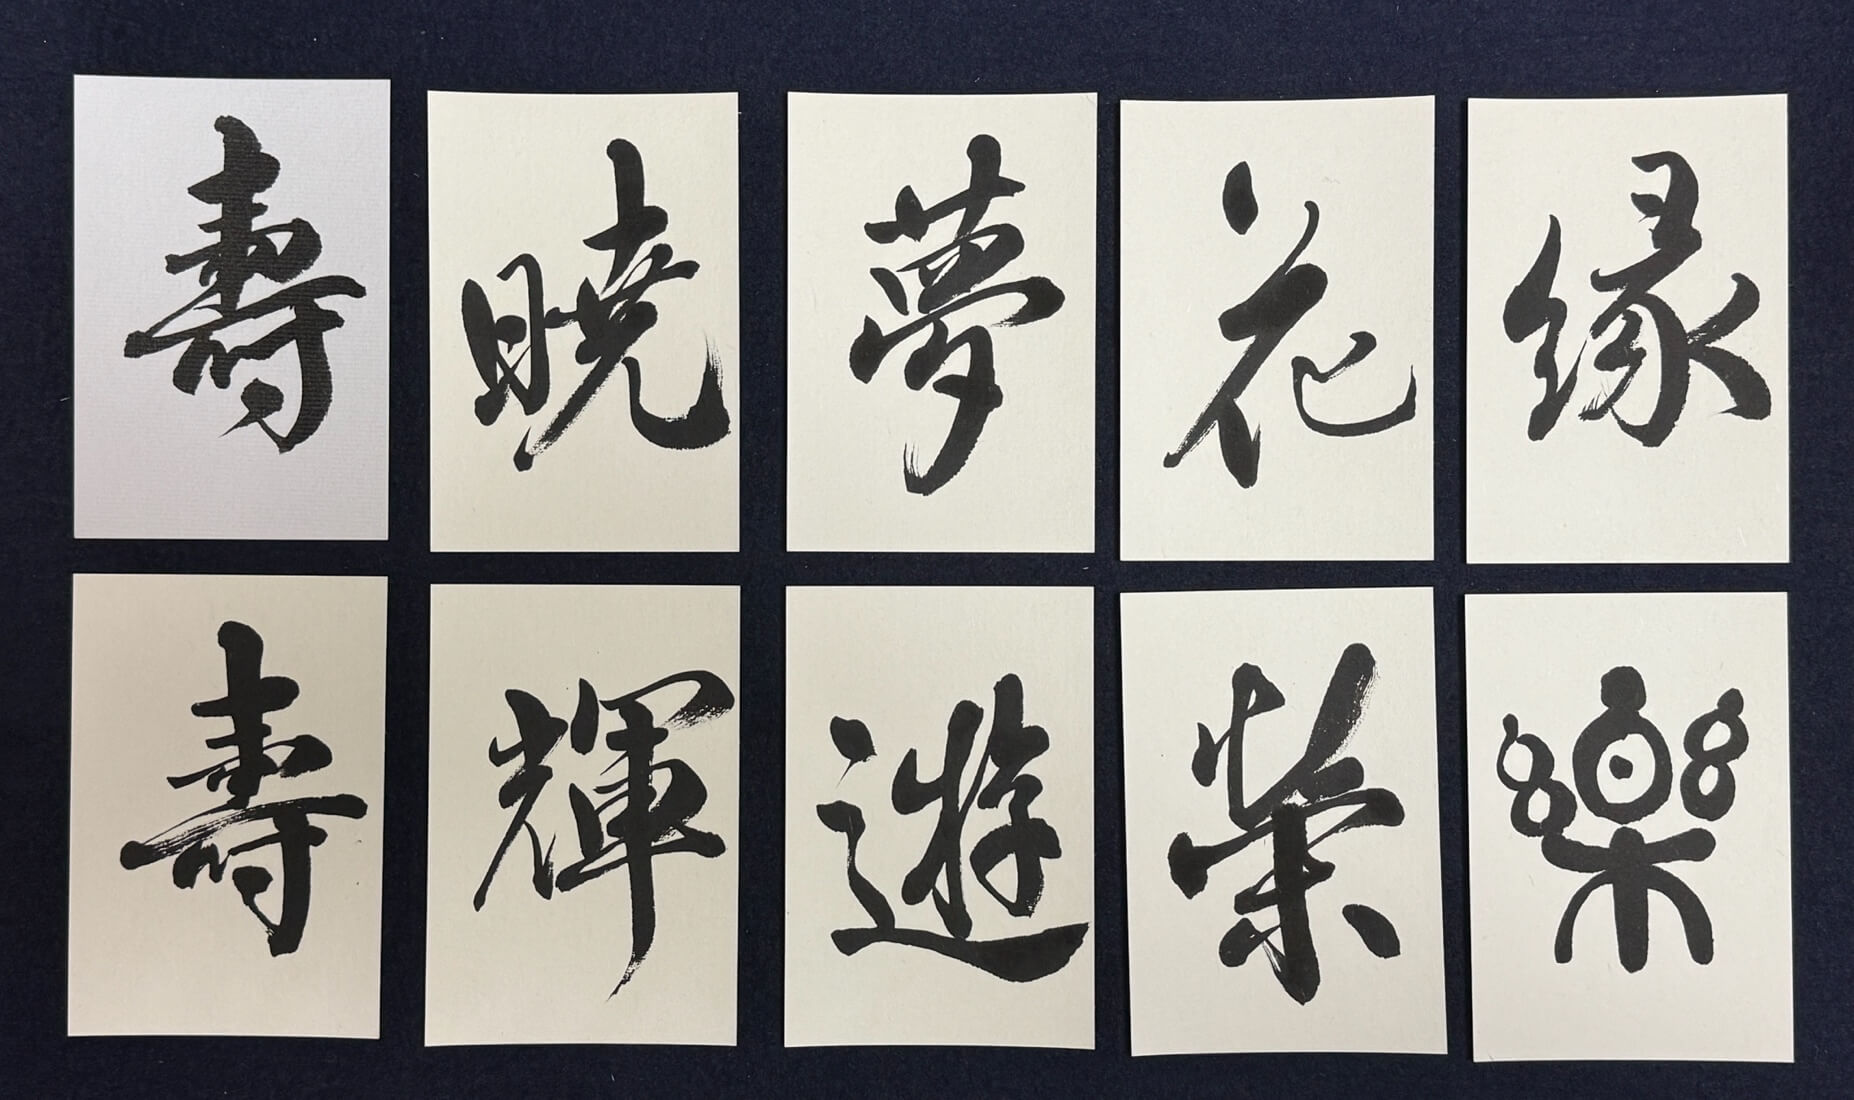 壽 暁 夢 花 縁
壽 輝 遊 栄 樂